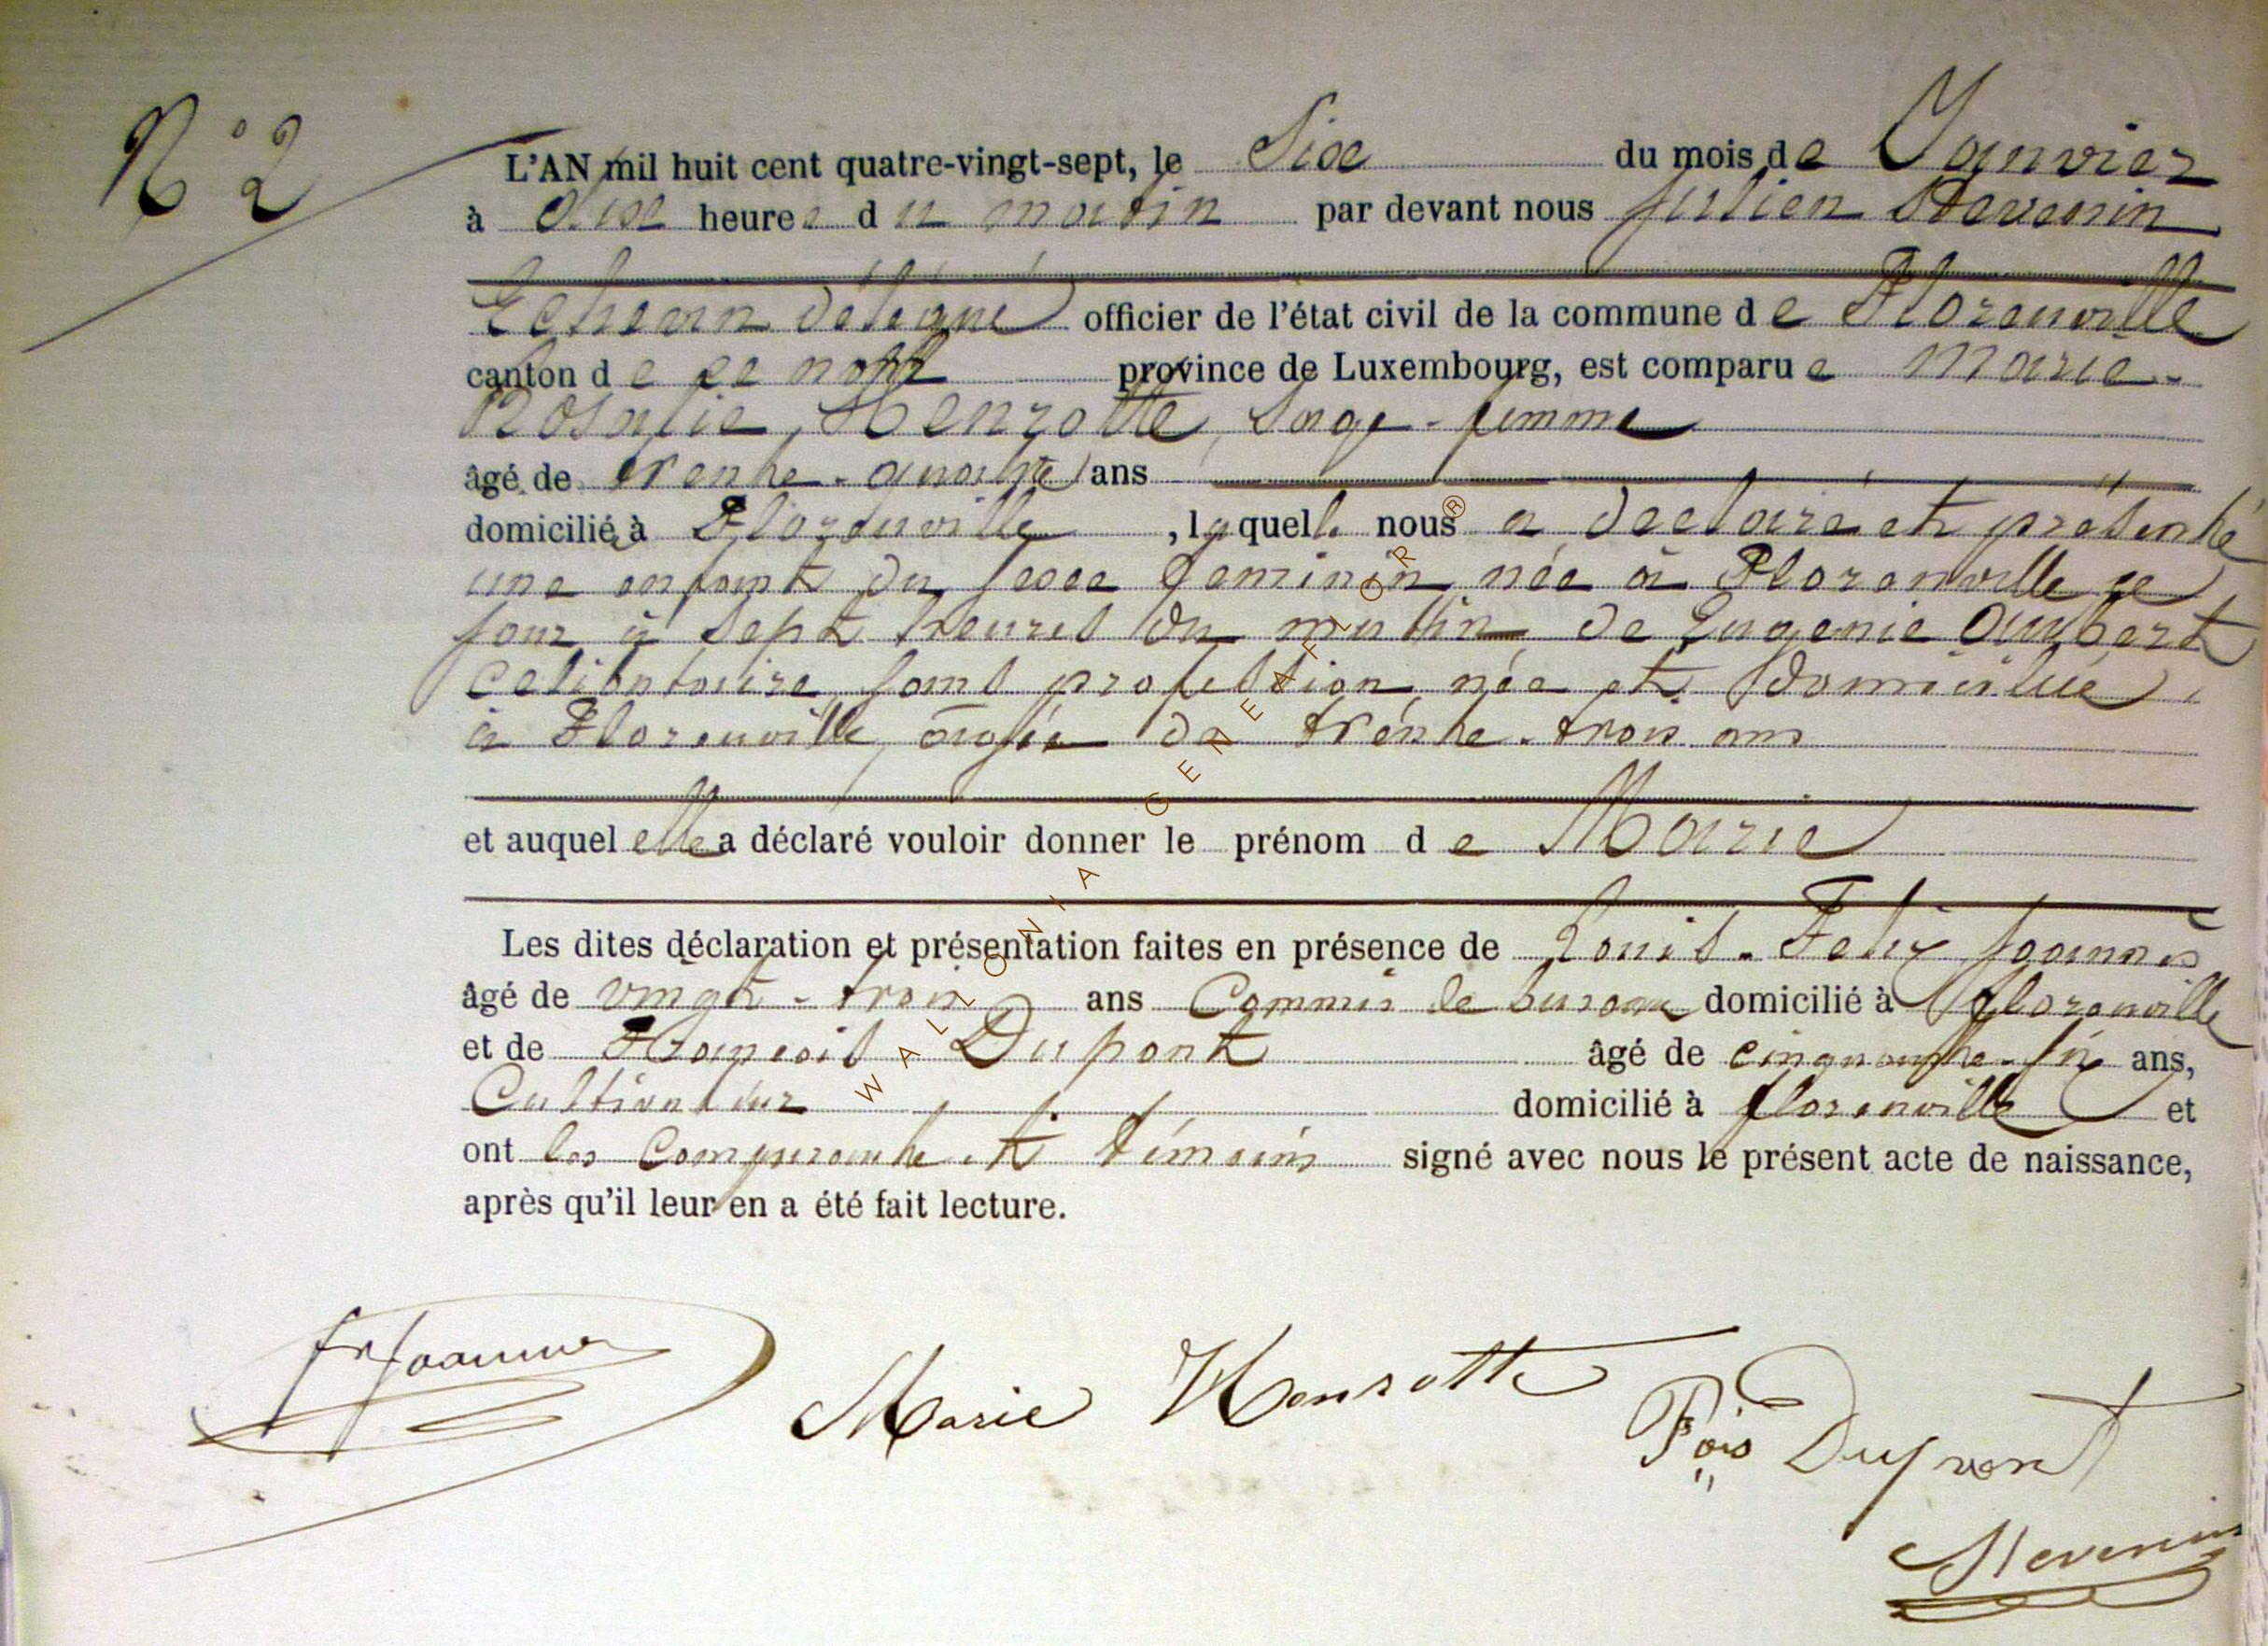 N° 2
L'AN mil huit cent quatre-vingt-sept, le Six du mois de Janvier
à dix heures du matin par devant nous Julien
Echevin délégué officier de l'état civil de la commune de Florenville
canton de ce nom province de Luxembourg, est comparue Marie-
Rosalie Henrotte, Sage-femme
âgé de trente-quatre ans
domicilié à Florenville, laquelle nous a déclaré et présenté
une enfant du sexe féminin née à Florenville ce
jour à sept heures du matin de Eugenie Aubert
Celibataire, sans profession, née et domiciliée
à Florenville, âgée de trente-trois ans
et auquel elle a déclaré vouloir donner le prénom de Marie
Les dites déclaration et présentation faites en présence de Louis-Felix Joannes
âgé de vingt-trois ans Commis de bureau domicilié à Florenville
et de François Dupont âgé de cinquante-six ans,
Cultivateur domicilié à florenville et
ont les Comparante et témoins signé avec nous le présent acte de naissance,
après qu'il leur en a été fait lecture.
Joannes
Marie Henrotte
Fois Dupont
WALLONIA GENEAFLOR ®